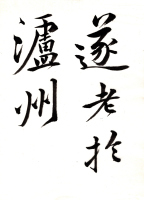 遂老於
瀘州